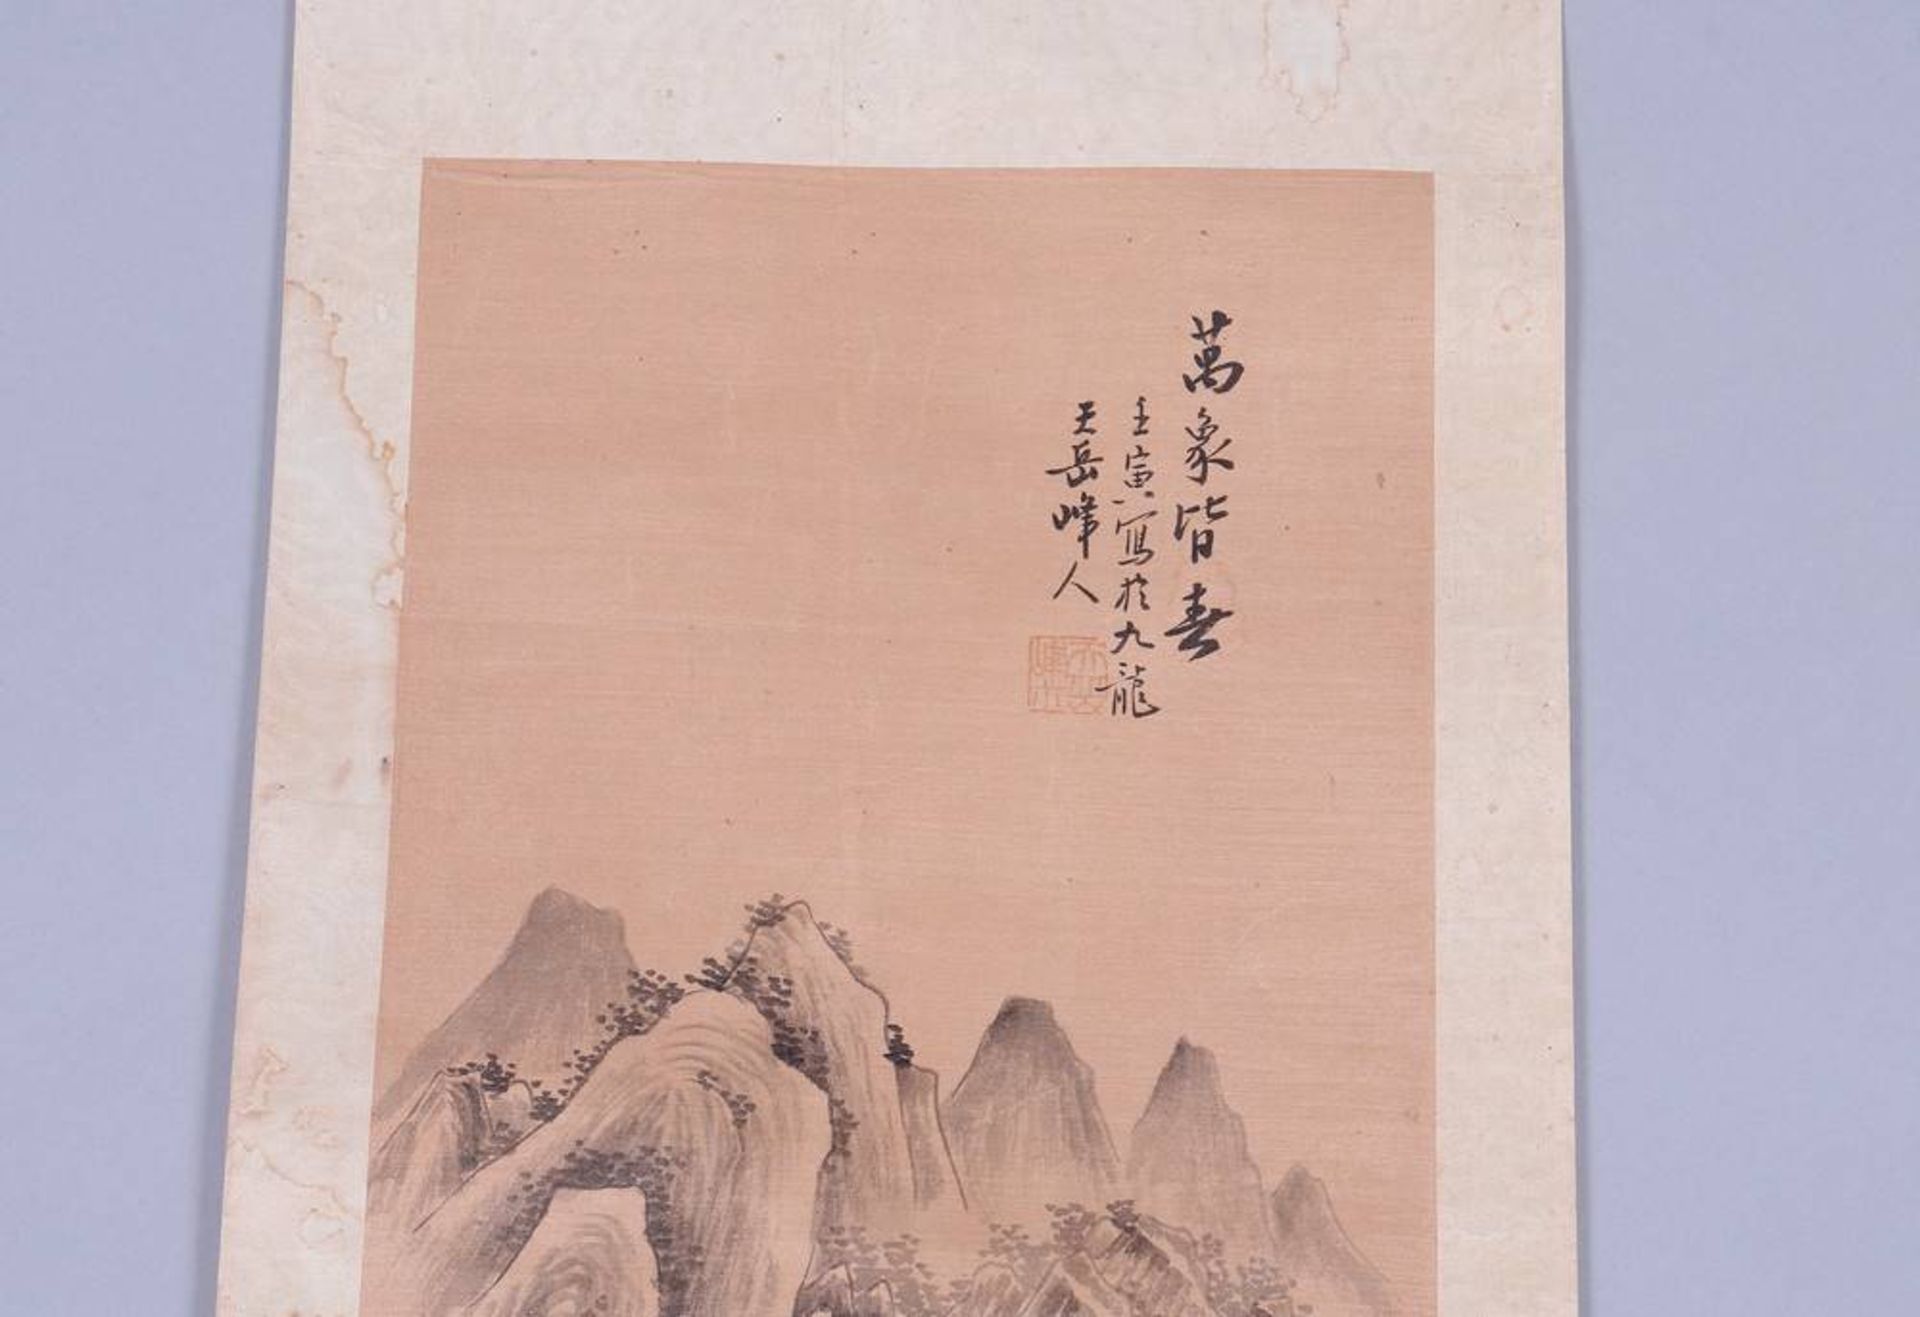 萬象皆春
壬寅寫於九龍
天岳峰人